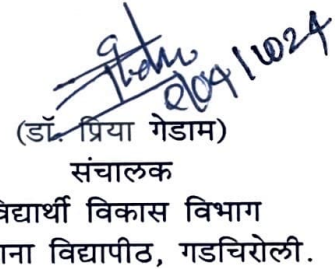 (डॉ. प्रिया गेडाम)
संचालक
विद्यार्थी विकास विभाग
विद्यापीठ, गडचिरोली.